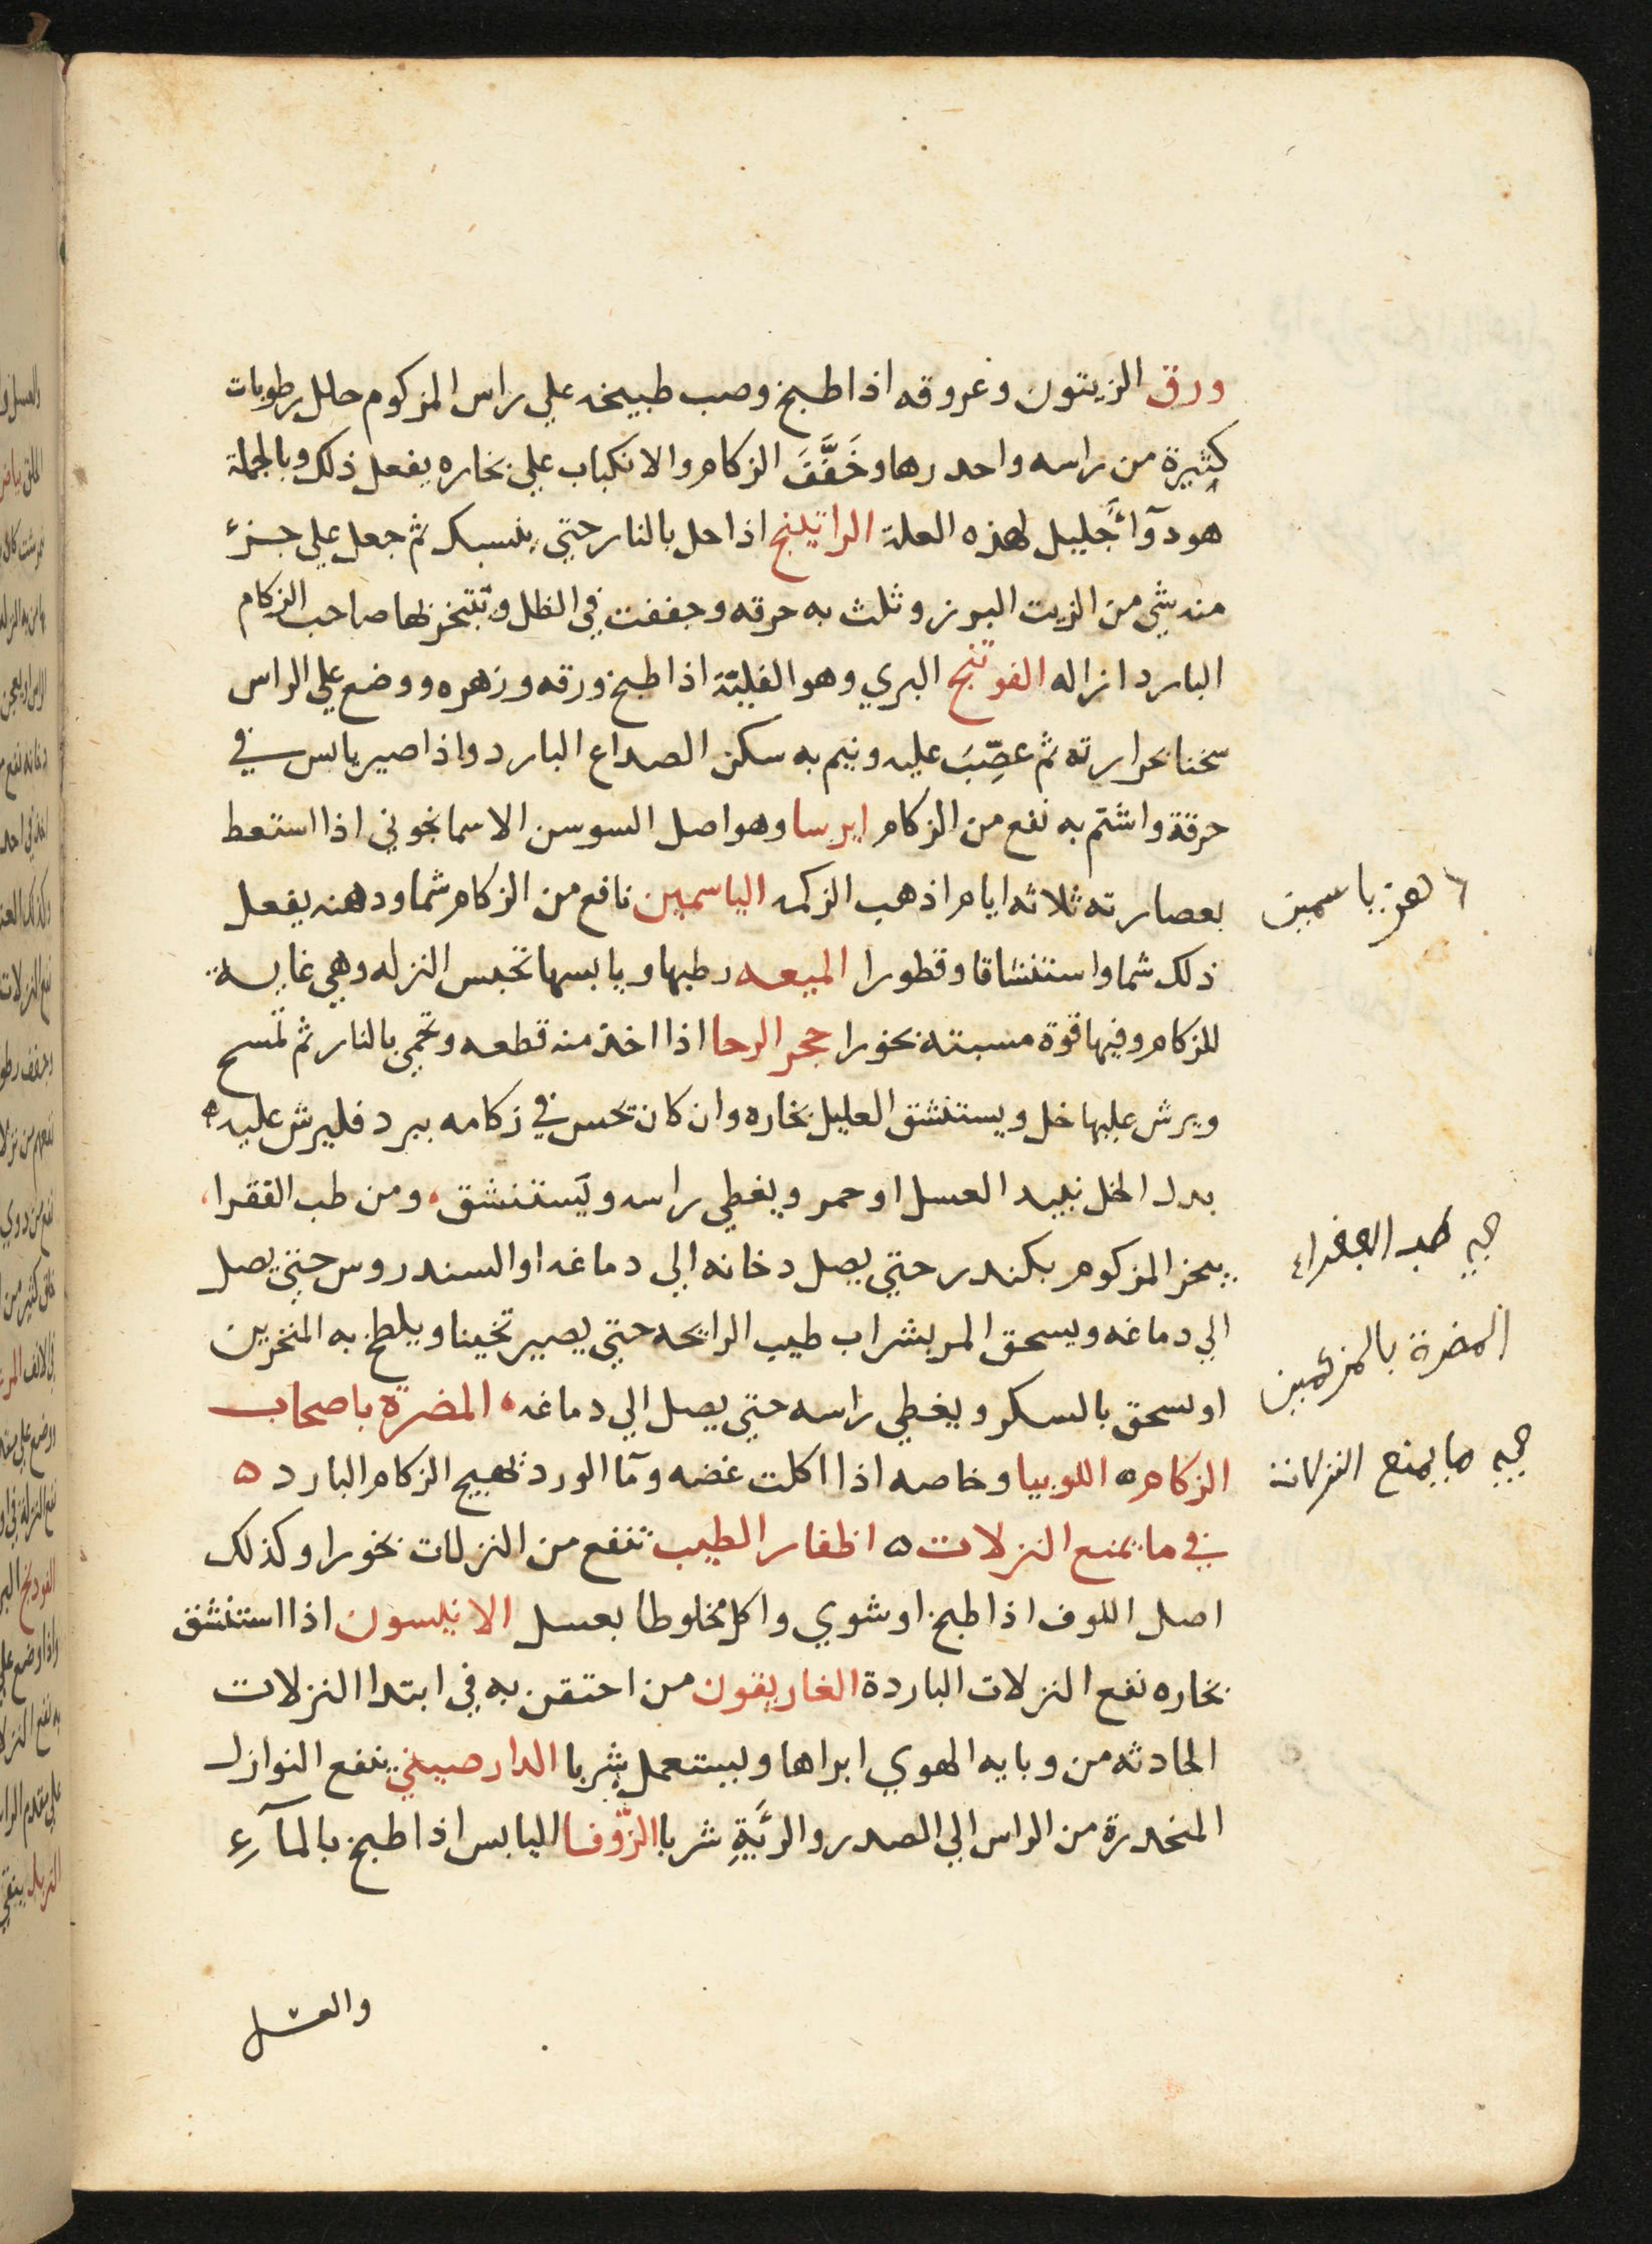 ورق الزيتون وعروقه اذا طبخ وصب طبيخه علي راس المزكوم حلل رطوبات
كثيرة من راسه واحدرها وخَفَّفَ الزكام والانكباب علي بخاره يفعل ذلك وبالجملة
هو دوآ جليل لهذه العلة الراتينج اذا حل بالنار حتي ينسبك ثم جعل علي جزء
منه شي من الزيت البزر وثلث به حرقه وجففت في الظل وتبخر بها صاحب الزكام
البارد ازاله الفوتنج البري وهو الفليّة اذا طبخ ورقه وزهره ووضع علي الراس
سخنا بحرارته ثم عصِّبَ عليه ونيم به سكن الصداع البارد واذا صير يابس في
خرقة واشتم به نفع من الزكام ايرسا وهو اصل السوسن الاسمانجوني اذا استعط
بعصارته ثلاثه ايام اذهب الزكمه الياسمين نافع من الزكام شما ودهنه يفعل
ذلك شما واستنشاقا وقطورا الميعه رطبها ويابسها تحبس النزله وهي غايه
للزكام وفيها قوة مسبته بخورا حجر الرحا اذا اخذ منه قطعه وتحمي بالنار ثم تمسح
ويرش عليها خل ويستنشق العليل بخاره وان كان تحس في زكامه ببرد فليرش عليه
بدل الخل نبيد العسل او خمر ويغطي راسه ويَستنشق ومن طب الفقرا
يبخر المزكوم بكندر حتي يصل دخانه الي دماغه او السندروس حتي يصل
الي دماغه ويسحق المر بشراب طيب الرايحه حتي يصير ثخينا ويلطخ به المنخرين
او يسحق بالسكر ويغطي راسه حتي يصل الي دماغه المضرة باصحاب
الزكام ه اللوبيا وخاصه اذا اكلت غضه ومآ الورد تهيج الزكام البارد ه
في ما يمنع النزلات ه اظفار الطيب تنفع من النزلات بخورا وكذلك
اصل اللوف اذا طبخ او شوي واكل مخلوطا بعسل الانيسون اذا استنشق
بخاره نفع النزلات الباردة الغاريقون من احتقن به في ابتدا النزلات
الحادثه من وبايه الهوي ابراها وليستعمل شربا الدارصيني ينفع النوازل
المنحدرة من الراس الي الصدر والرئَيةِ شربا الزّوفا اليابس اذا طبخ بالمآء
والعسل
دهن ياسمين
طب الفقراء
المضرة بالمزكمين
ما يمنع النزلات